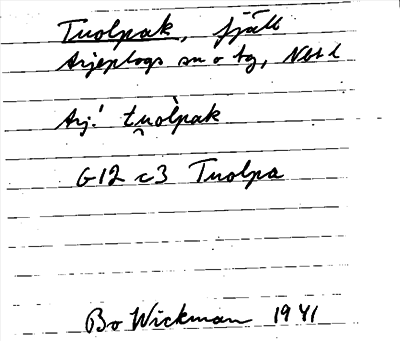 Tuolpak, fjäll
Arjeplogs sn o tg, Nbt l
Arj. tu̯òlpak
G12 c3 Tuolpa
Bo Wickman 1941